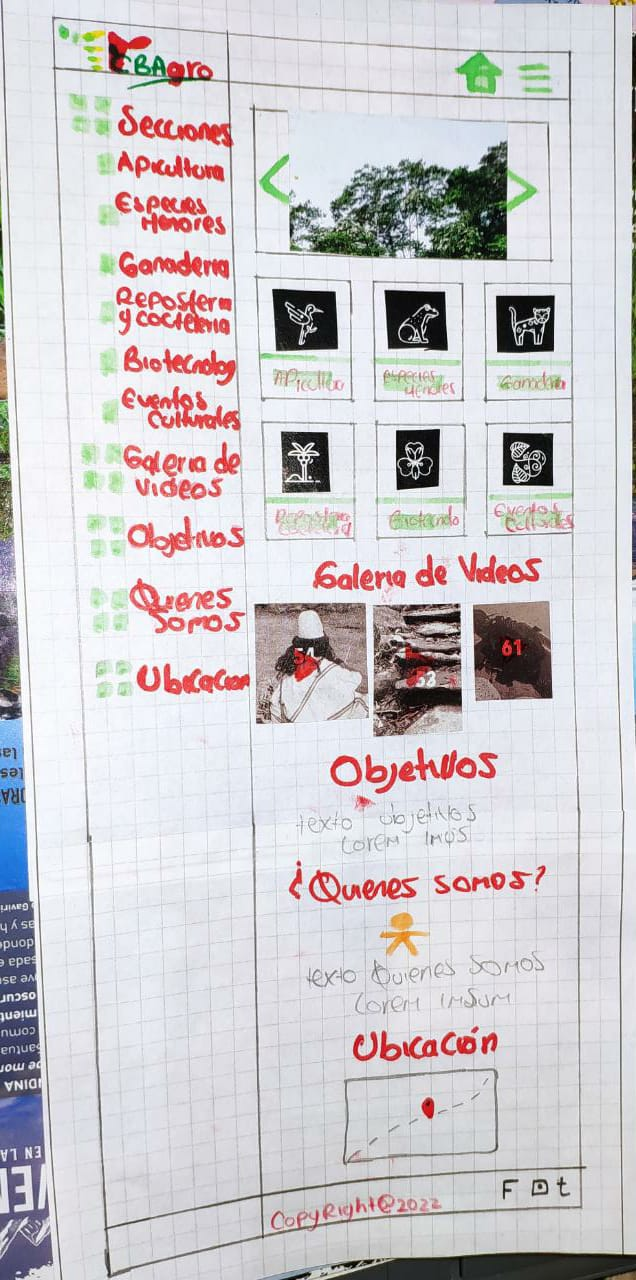 EBAgro
Secciones
Apicultura
Especies
Menores
Ganaderia
Reposteria
y cocteleria
Biotecnolog
Eventos
Culturales
Galeria de
videos
Objetivos
Quienes
Somos
Ubicacion
Apicultura
Especies
Menores
Ganaderia
Eventos
Culturales
Galeria de Videos
54
53
61
Objetivos
texto objetivos
Lorem
¿Quienes somos?
texto Quienes Somos
Lorem Imsum
Ubicación
F t
CopyRight@2022